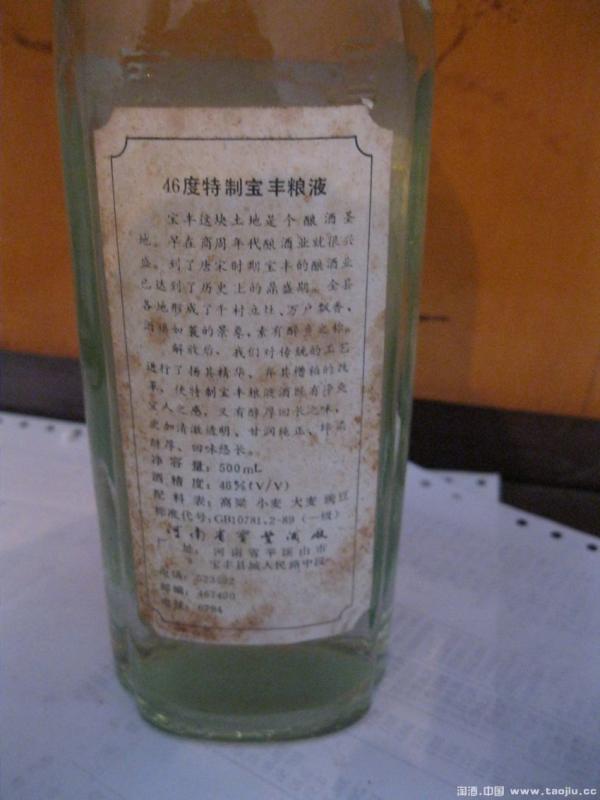 46度特制宝丰粮液
宝丰这块土地是个酿酒圣
地。早在商周年代酿酒业就很兴
盛。到了唐宋时期宝丰的酿酒业
已达到了历史上的鼎盛期。全县
各地形成了千村立灶、万户飘香、
酒旗如蓑的景象,素有醉乡之称。
解放后,我们对传统的工艺
进行了扬其精华、弃其糟粕的改
革,使特制宝丰粮液酒既有净爽
宜人之感,又有醇厚回长之味,
更加清澈透明、甘润纯正、绵柔
醇厚、回味悠长。
净容量:500mL
酒精度:46%(V/V)
配料表:高粱 小麦 大麦 豌豆
标准代号:GB10781.2-89(一级)
河南省宝丰酒厂
厂址:河南省平顶山市
宝丰县城人民路中段
电话:
邮编:467400
电挂:6794
淘酒.中国 www.taojiu.cc